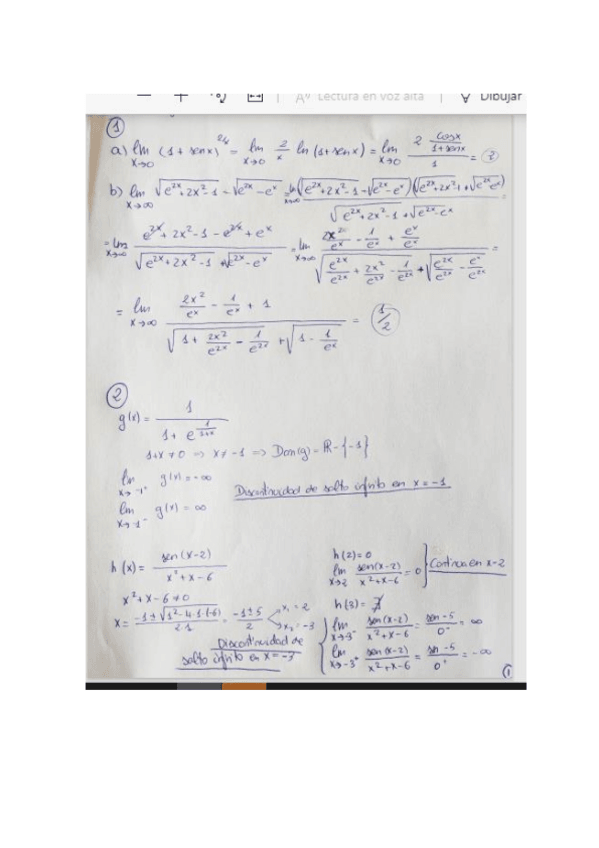 Lectura en voz alta | Dibujar
1
a) lim x→0 (1 + sen x)^2/x = lim x→0 2/x ln (1+sen x) = lim x→0 (2 cos x/(1+sen x))/1 = 2
b) lim x→∞ √(e^2x + 2x² - 1) - √(e^2x - e^x) = lim x→∞ (√(e^2x + 2x² - 1) - √(e^2x - e^x))(√(e^2x + 2x² - 1) + √(e^2x - e^x)) / (√(e^2x + 2x² - 1) + √(e^2x - e^x)) =
= lim x→∞ (e^2x + 2x² - 1 - e^2x + e^x) / (√(e^2x + 2x² - 1) + √(e^2x - e^x)) = lim x→∞ (2x²/e^x - 1/e^x + e^x/e^x) / (√(e^2x/e^2x + 2x²/e^2x - 1/e^2x) + √(e^2x/e^2x - e^x/e^2x)) =
= lim x→∞ (2x²/e^x - 1/e^x + 1) / (√(1 + 2x²/e^2x - 1/e^2x) + √(1 - 1/e^x)) = 1/2
2
g(x) = 1 / (1 + e^(1/(1+x)))
1+x ≠ 0 ⇒ x ≠ -1 ⇒ Dom(g) = ℝ - {-1}
lim x→-1⁺ g(x) = -∞
Discontinuidad de salto infinito en x = -1
lim x→-1⁻ g(x) = ∞
h(x) = sen(x-2) / (x² + x - 6)
x² + x - 6 ≠ 0
x = (-1 ± √(1² - 4·1·(-6))) / 2·1 = (-1 ± 5)/2
x₁ = 2
x₂ = -3
Discontinuidad de
salto infinito en x = -3
h(2) = 0
lim x→2 sen(x-2) / (x² + x - 6) = 0
Continua en x=2
h(3) = ∄
lim x→-3⁻ sen(x-2) / (x² + x - 6) = sen -5 / 0⁻ = ∞
lim x→-3⁺ sen(x-2) / (x² + x - 6) = sen -5 / 0⁺ = -∞
1